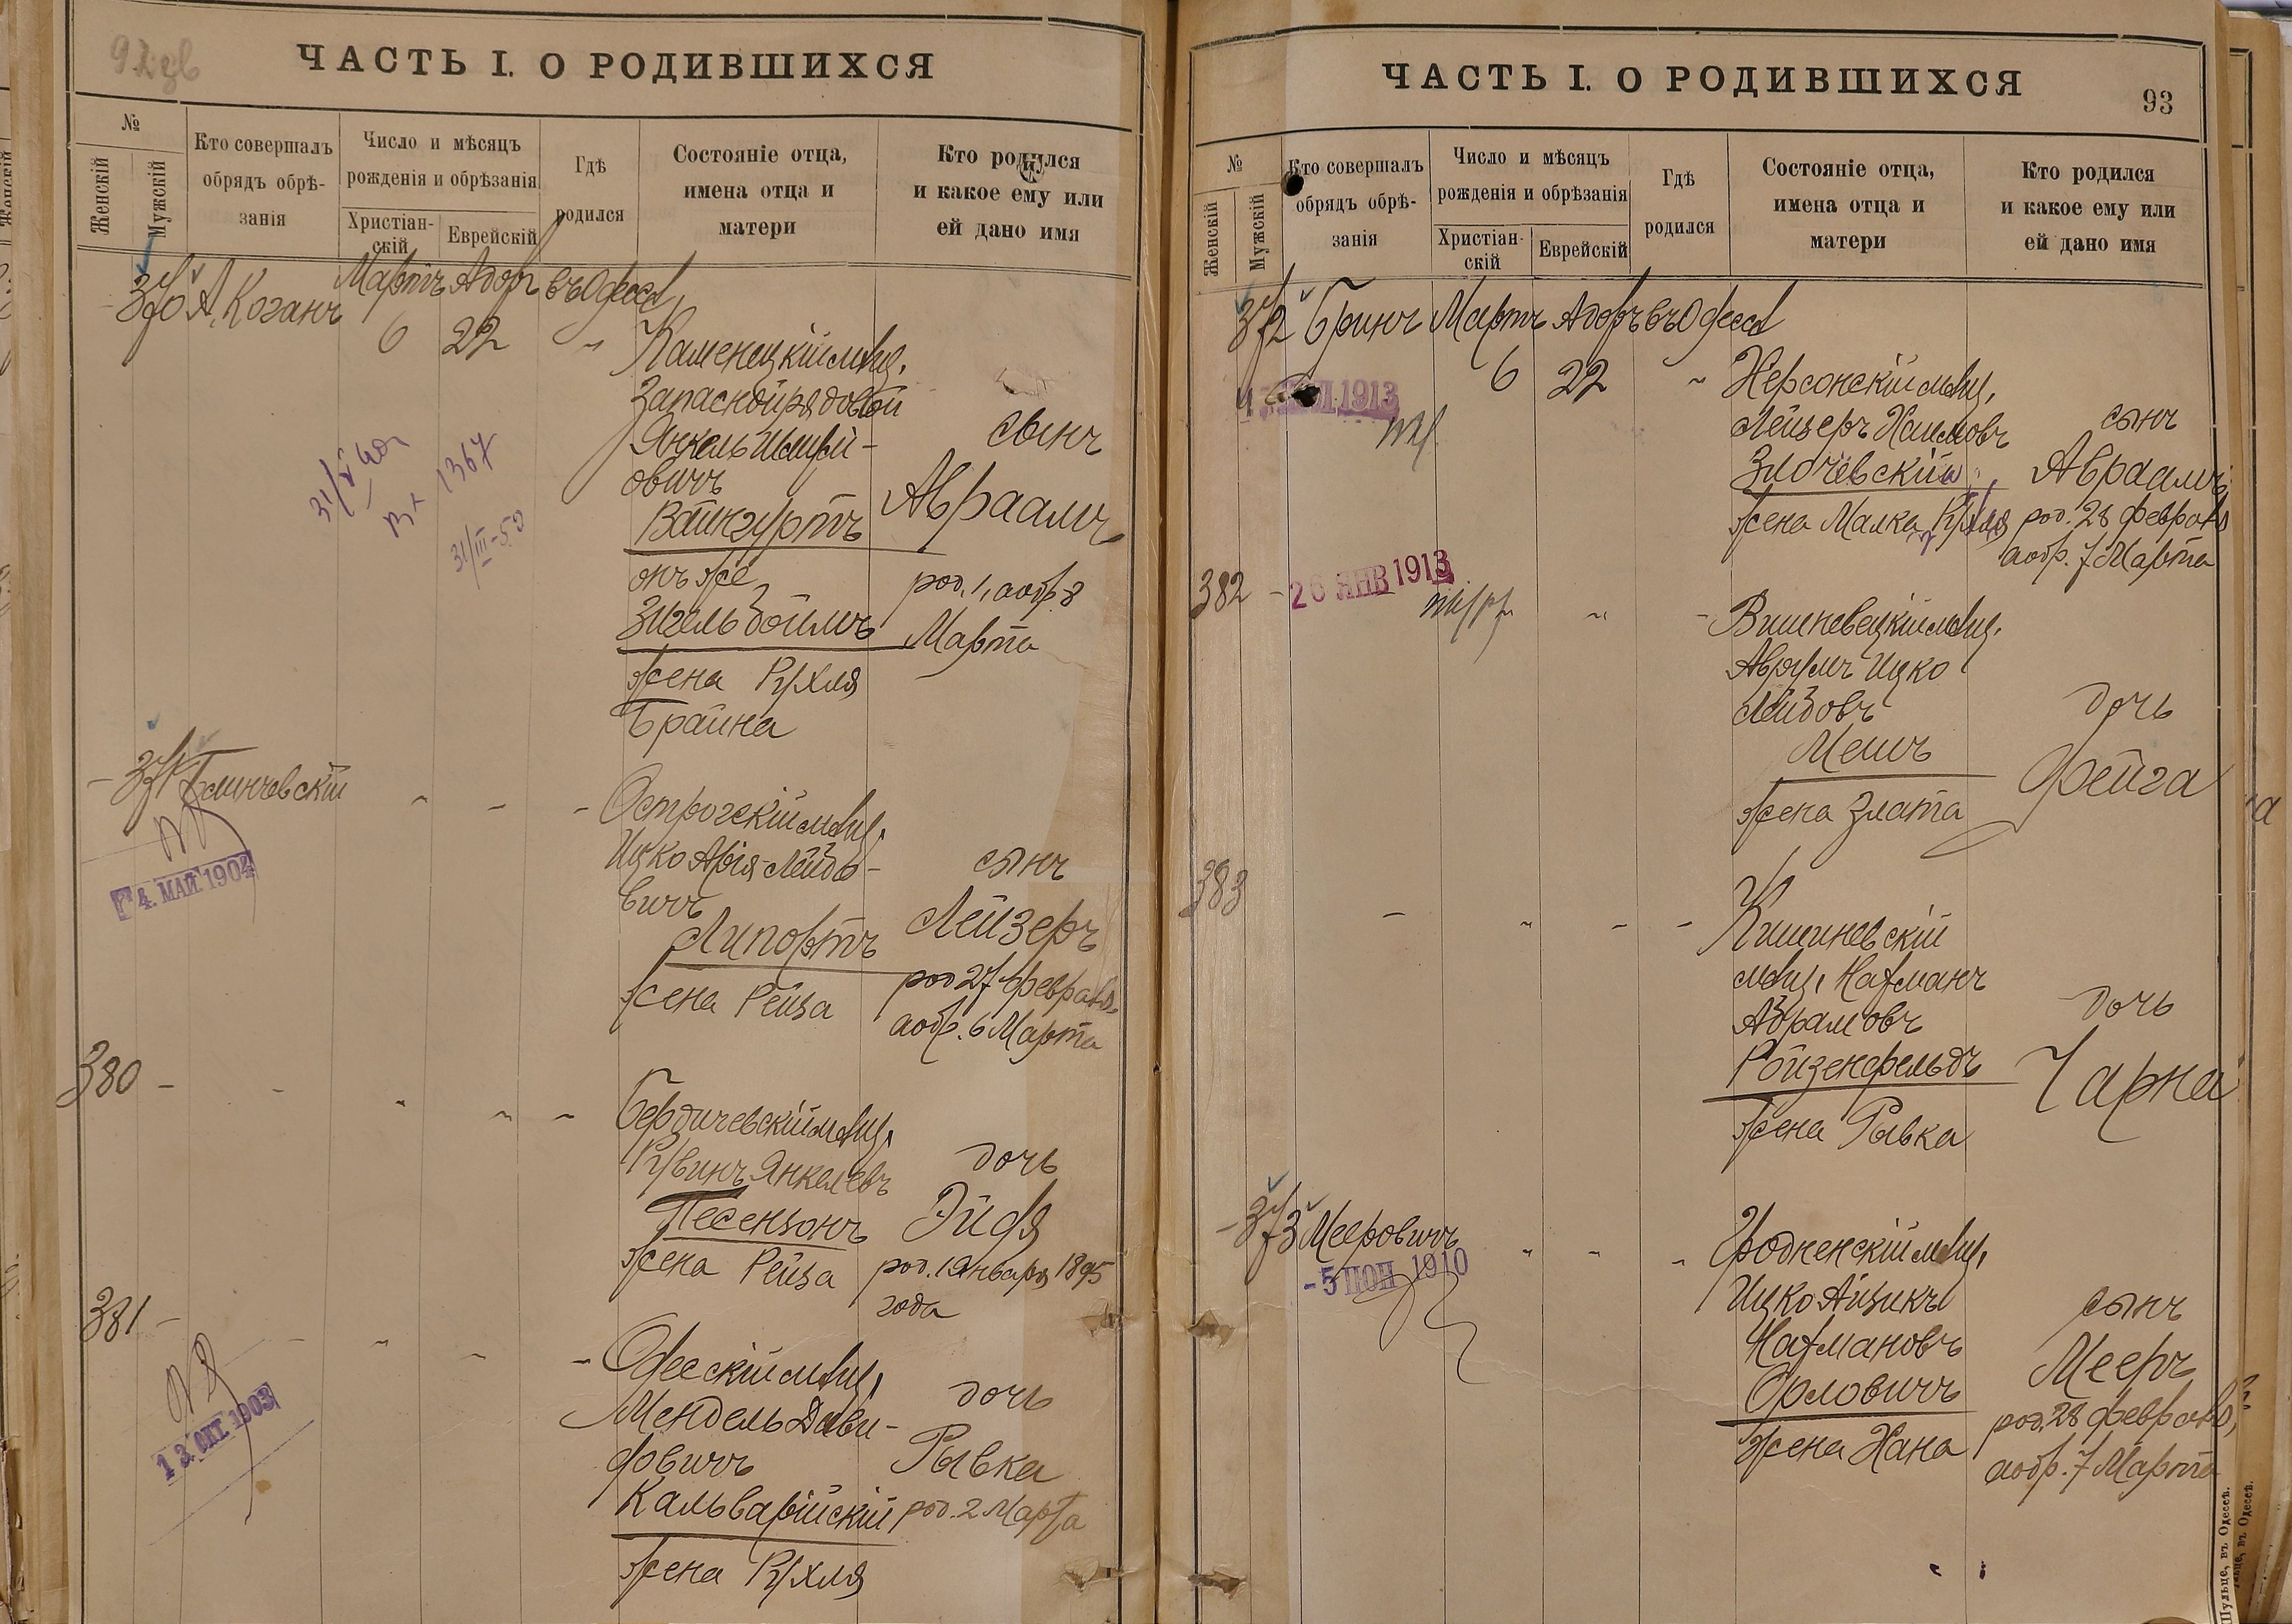 ЧАСТЬ I. О РОДИВШИХСЯ
№
Женскій
Мужскій
Кто совершалъ
обрядъ обрѣ-
занія
Число и мѣсяцъ
рожденія и обрѣзанія
Христіан-
скій
Еврейскій
Гдѣ
родился
Состояніе отца,
имена отца и
матери
Кто родился
и какое ему или
ей дано имя
370 А. Коганъ Мартъ Адоръ въ Одессѣ
6 22 "
Каменецкій мѣщ.
Запасной рядовой
Янкель
овичъ
Вайнгуртъ
онъ же
Зигельбоймъ
жена Рухля
Брайна
сынъ
Авраамъ
род. 1, аобр. 8
Марта
1367
31/III-50
371 Глинчевскій
4. МАЙ 1904
Острогскій мѣщ.
Ицко Арія-Лейбо-
вичъ
Липортъ
жена Рейза
сынъ
Лейзеръ
род 27 февраля,
аобр. 6 Марта
380
Бердичевскій мѣщ.
Рувинъ Янкелевъ
Песензонъ
жена Рейза
дочь
Эйдя
род. 1 Января 1895
года
381
13 ОКТ. 1903
Одесскій мѣщ.
Мендель Дави-
довичъ
Кальварійскій
жена Рухля
дочь
Рывка
род. 2 Марта
ЧАСТЬ I. О РОДИВШИХСЯ
93
№
Женскій
Мужскій
Кто совершалъ
обрядъ обрѣ-
занія
Число и мѣсяцъ
рожденія и обрѣзанія
Христіан-
скій
Еврейскій
Гдѣ
родился
Состояніе отца,
имена отца и
матери
Кто родился
и какое ему или
ей дано имя
372 Бринъ Мартъ Адоръ въ Одессѣ
6 22 "
1913
Херсонскій мѣщ.
Лейзеръ Хаимовъ
Злочевскій
жена Малка Рухля
сынъ
Авраамъ
род. 28 февраля
аобр. 7 Марта
382
26 ЯНВ 1913
Вишневецкій мѣщ.
Аврумъ Ицко
Лейбовъ
Мешъ
жена Злата
дочь
Фейга
383
Кишиневскій
мѣщ. Нахманъ
Абрамовъ
Ройзенфельдъ
жена Рывка
дочь
Чарна
373 Мееровичъ
-5 ІЮН 1910
Гродненскій мѣщ.
Ицко Айзикъ
Нахмановъ
Орловичъ
жена Хана
сынъ
Мееръ
род. 28 февраля,
аобр. 7 Марта
Шульце, въ Одессѣ.
въ Одессѣ.